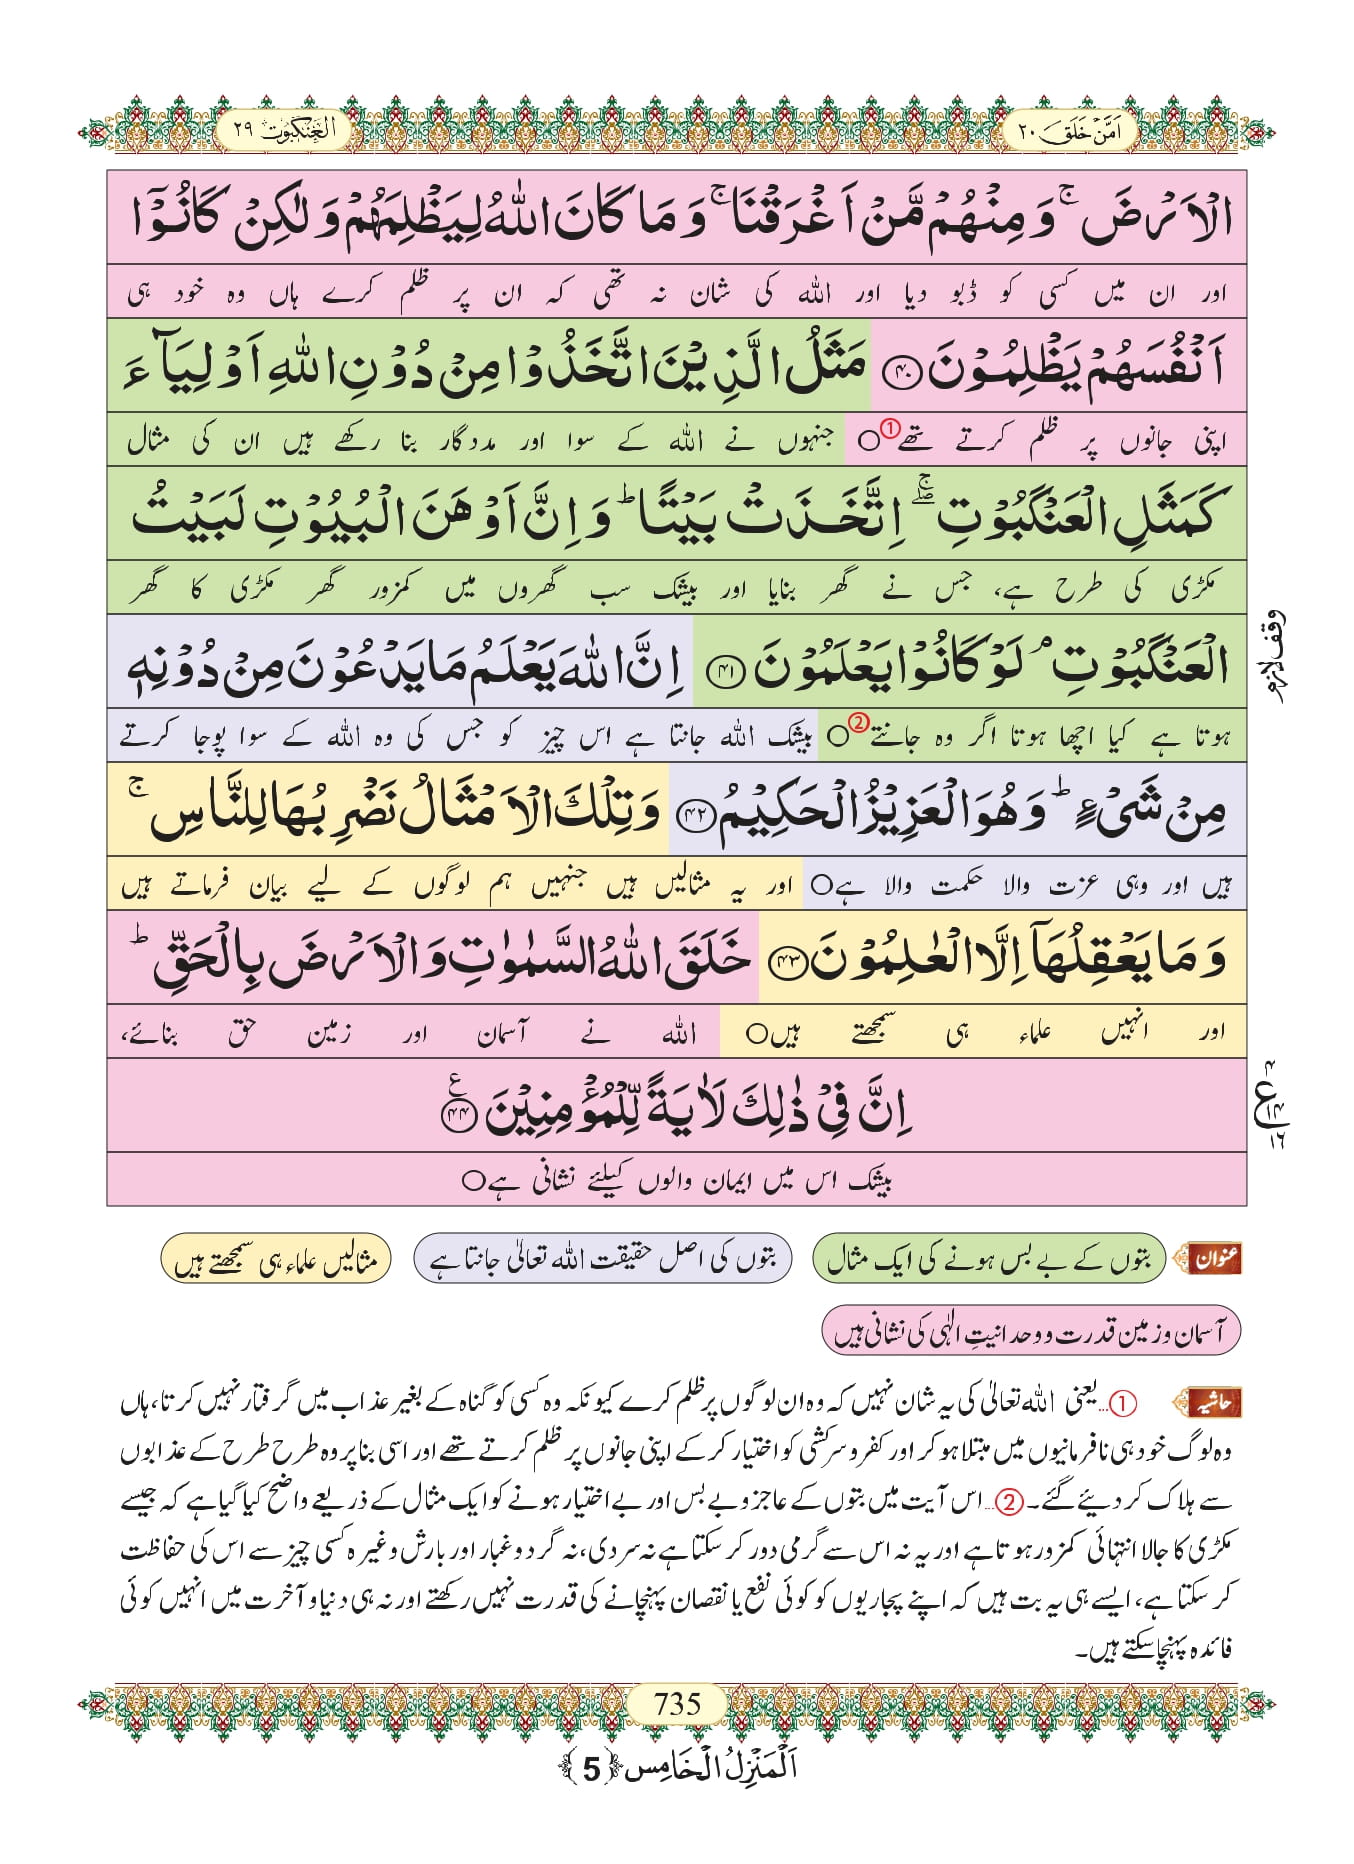 اَمَّنْ خَلَقَ ٢٠
العَنْكَبُوْت ٢٩
الْاَرْضَ ۚ وَ مِنْهُمْ مَّنْ اَغْرَقْنَا ۚ وَ مَا كَانَ اللّٰهُ لِیَظْلِمَهُمْ وَ لٰكِنْ كَانُوْۤا
اور ان میں کسی کو ڈبو دیا اور اللہ کی شان نہ تھی کہ ان پر ظلم کرے ہاں وہ خود ہی
اَنْفُسَهُمْ یَظْلِمُوْنَ ﴿۴۰﴾ مَثَلُ الَّذِیْنَ اتَّخَذُوْا مِنْ دُوْنِ اللّٰهِ اَوْلِیَآءَ
اپنی جانوں پر ظلم کرتے تھے① ○ جنہوں نے اللہ کے سوا اور مددگار بنا رکھے ہیں ان کی مثال
كَمَثَلِ الْعَنْكَبُوْتِ ۖۚ اِتَّخَذَتْ بَیْتًا ؕ وَ اِنَّ اَوْهَنَ الْبُیُوْتِ لَبَیْتُ
مکڑی کی طرح ہے، جس نے گھر بنایا اور بیشک سب گھروں میں کمزور گھر مکڑی کا گھر
الْعَنْكَبُوْتِ ۘ لَوْ كَانُوْا یَعْلَمُوْنَ ﴿۴۱﴾ اِنَّ اللّٰهَ یَعْلَمُ مَا یَدْعُوْنَ مِنْ دُوْنِهٖ
وقف لازم
ہوتا ہے کیا اچھا ہوتا اگر وہ جانتے② ○ بیشک اللہ جانتا ہے اس چیز کو جس کی وہ اللہ کے سوا پوجا کرتے
مِنْ شَیْءٍ ؕ وَ هُوَ الْعَزِیْزُ الْحَكِیْمُ ﴿۴۲﴾ وَ تِلْكَ الْاَمْثَالُ نَضْرِبُهَا لِلنَّاسِ ۚ
ہیں اور وہی عزت والا حکمت والا ہے○ اور یہ مثالیں ہیں جنہیں ہم لوگوں کے لیے بیان فرماتے ہیں
وَ مَا یَعْقِلُهَاۤ اِلَّا الْعٰلِمُوْنَ ﴿۴۳﴾ خَلَقَ اللّٰهُ السَّمٰوٰتِ وَ الْاَرْضَ بِالْحَقِّ ؕ
اور انہیں علماء ہی سمجھتے ہیں○ اللہ نے آسمان اور زمین حق بنائے،
اِنَّ فِیْ ذٰلِكَ لَاٰیَةً لِّلْمُؤْمِنِیْنَ ﴿۴۴﴾ ع
۴ ع ۱۴ ۱۶
بیشک اس میں ایمان والوں کیلئے نشانی ہے○
عنوان بتوں کے بے بس ہونے کی ایک مثال بتوں کی اصل حقیقت اللہ تعالیٰ جانتا ہے مثالیں علماء ہی سمجھتے ہیں
آسمان و زمین قدرت و وحدانیتِ الہٰی کی نشانی ہیں
حاشیہ ①...یعنی اللہ تعالیٰ کی یہ شان نہیں کہ وہ ان لوگوں پر ظلم کرے کیونکہ وہ کسی کو گناہ کے بغیر عذاب میں گرفتار نہیں کرتا، ہاں
وہ لوگ خود ہی نافرمانیوں میں مبتلا ہو کر اور کفر و سرکشی کو اختیار کر کے اپنی جانوں پر ظلم کرتے تھے اور اسی بنا پر وہ طرح طرح کے عذابوں
سے ہلاک کر دیئے گئے۔ ②...اس آیت میں بتوں کے عاجز و بے بس اور بے اختیار ہونے کو ایک مثال کے ذریعے واضح کیا گیا ہے کہ جیسے
مکڑی کا جالا انتہائی کمزور ہوتا ہے اور یہ نہ اس سے گرمی دور کر سکتا ہے نہ سردی، نہ گرد و غبار اور بارش وغیرہ کسی چیز سے اس کی حفاظت
کر سکتا ہے، ایسے ہی یہ بت ہیں کہ اپنے پجاریوں کو کوئی نفع یا نقصان پہنچانے کی قدرت نہیں رکھتے اور نہ ہی دنیا و آخرت میں انہیں کوئی
فائدہ پہنچا سکتے ہیں۔
735
اَلْمَنْزِلُ الْخَامِس ﴿5﴾